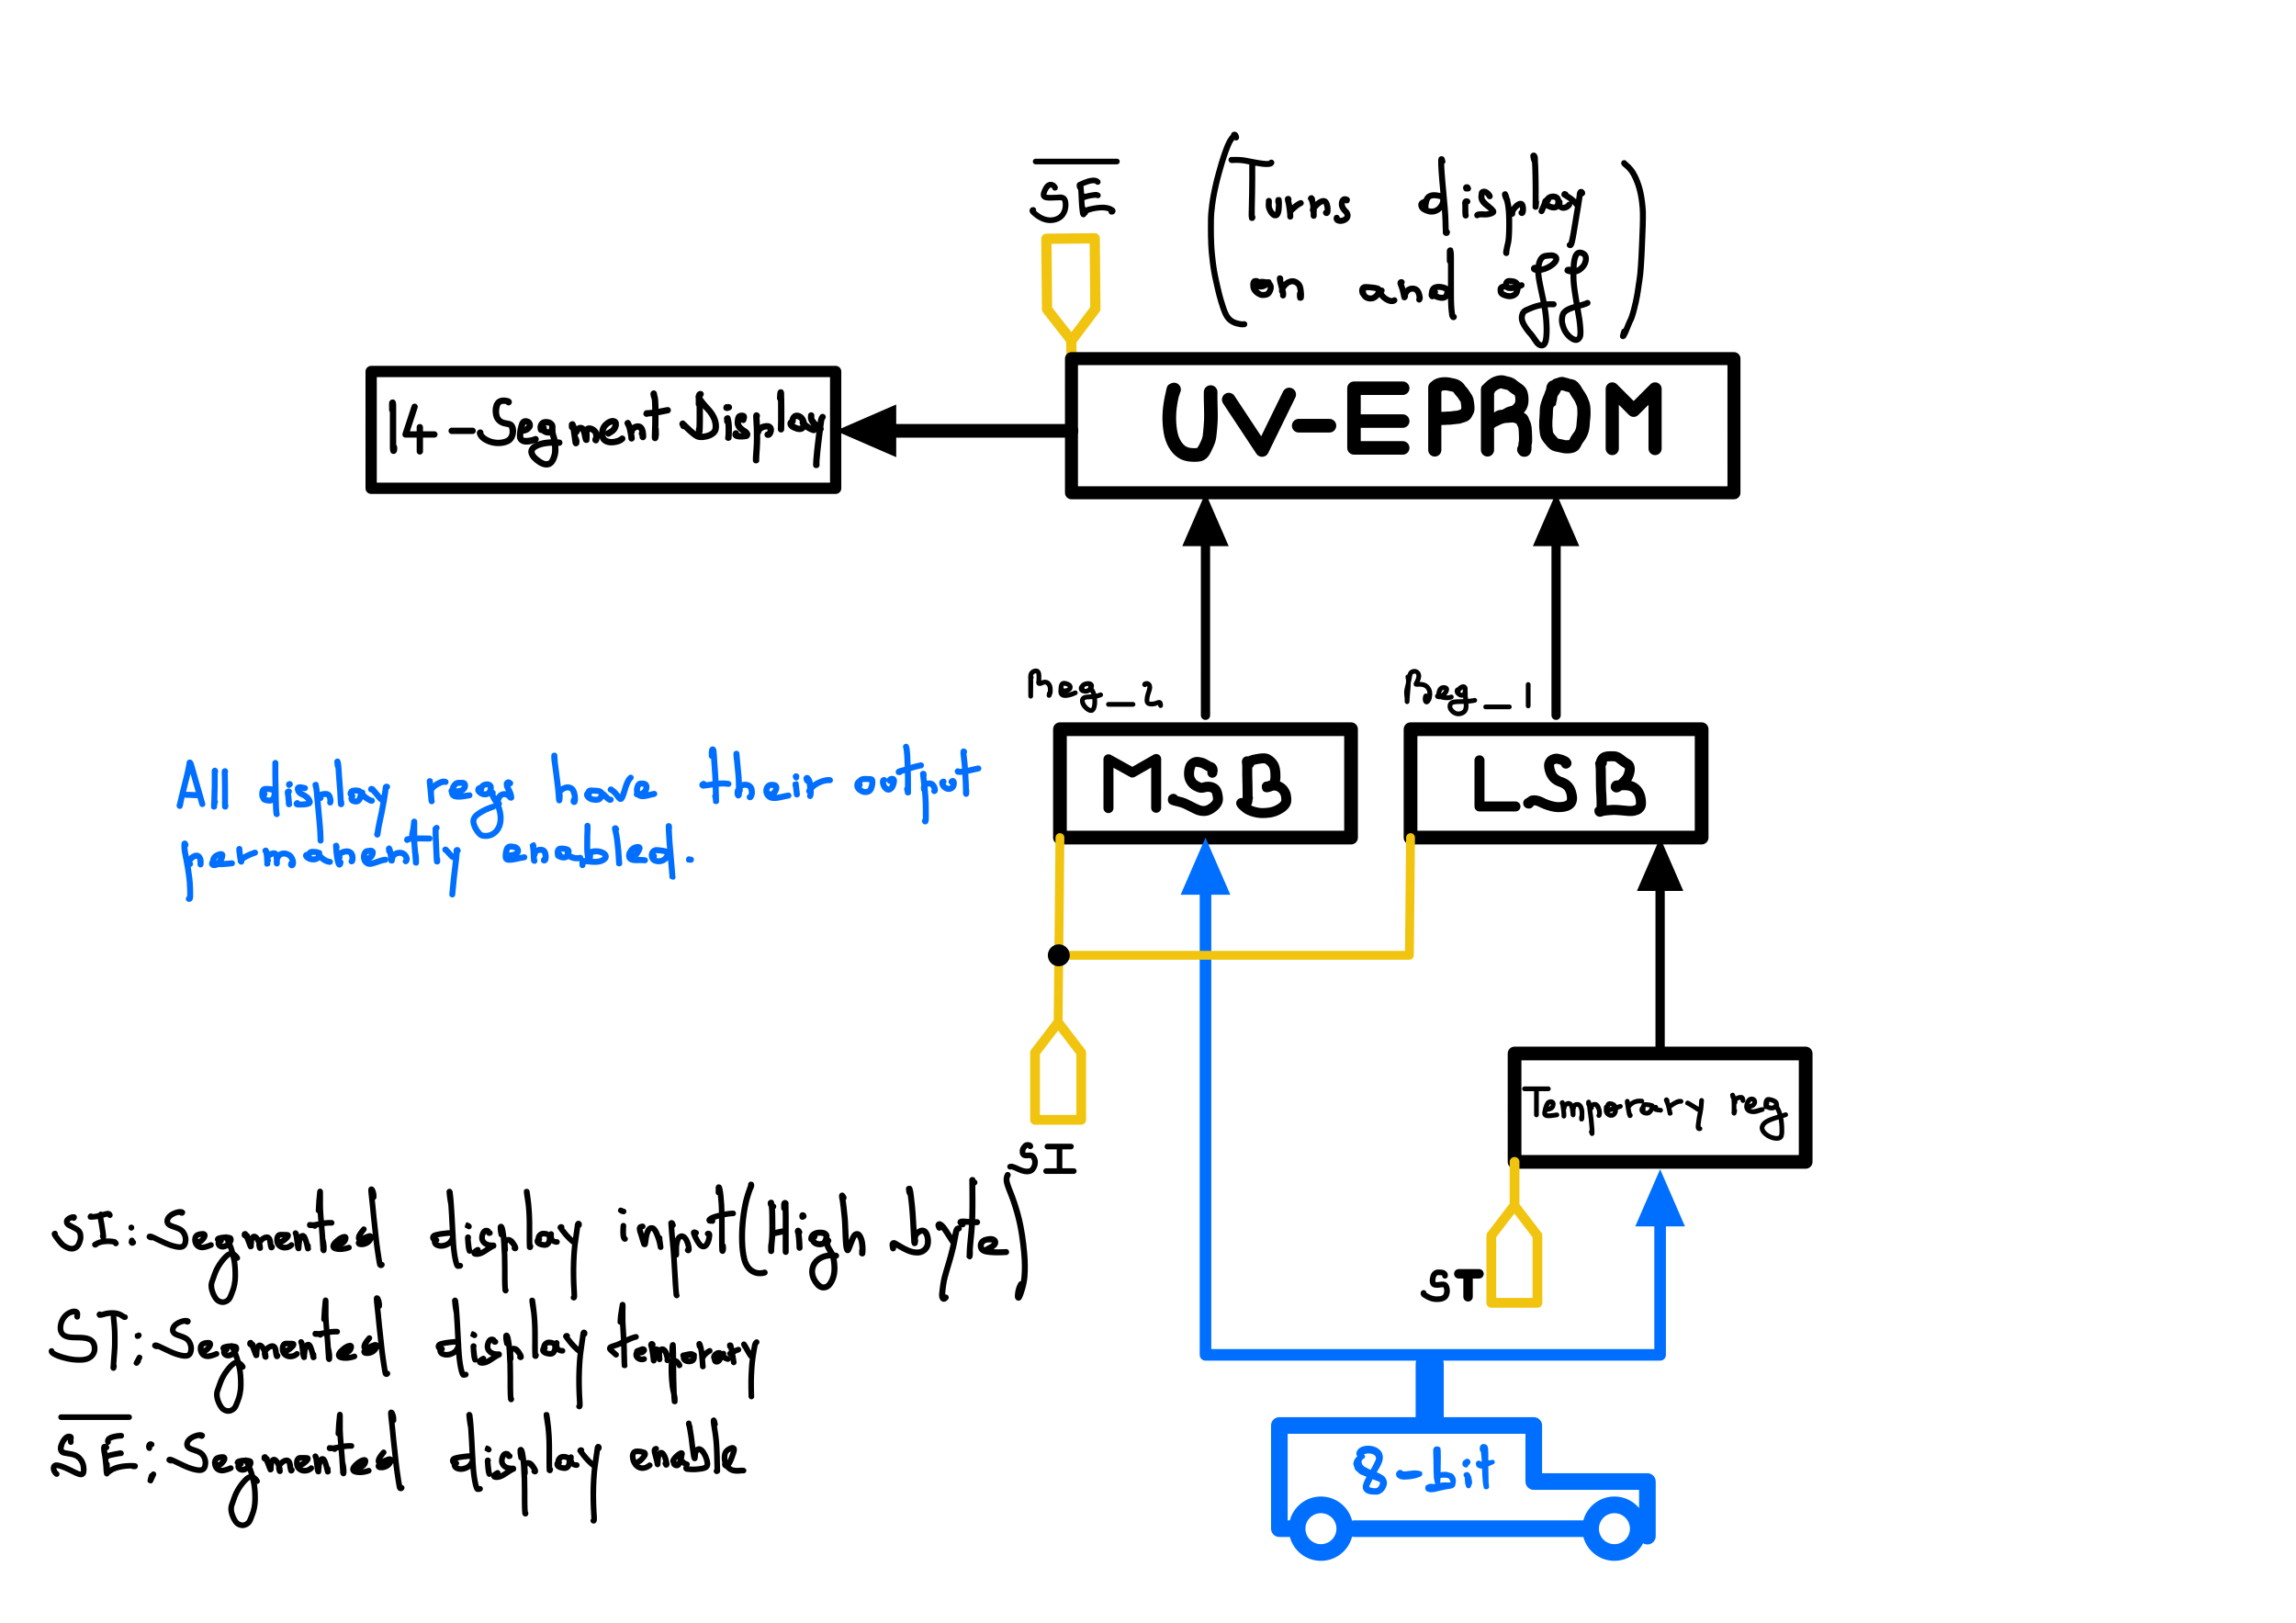 S̅E̅
(Turns display
on and off)
14-Segment Display
UV-EPROM
Reg_2
Reg_1
MSB
LSB
All display regs have their output
permanently enabled.
Temporary reg
SI
ST
SI: Segmented display input (High byte)
ST: Segmented display temporary
S̅E̅: Segmented display enable
8-bit